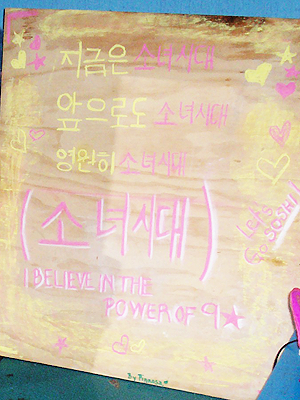 지금은 소녀시대
앞으로도 소녀시대
영원히 소녀시대
(소녀시대)
Let's
Go SOSHI!
I BELIEVE IN THE
POWER OF 9★